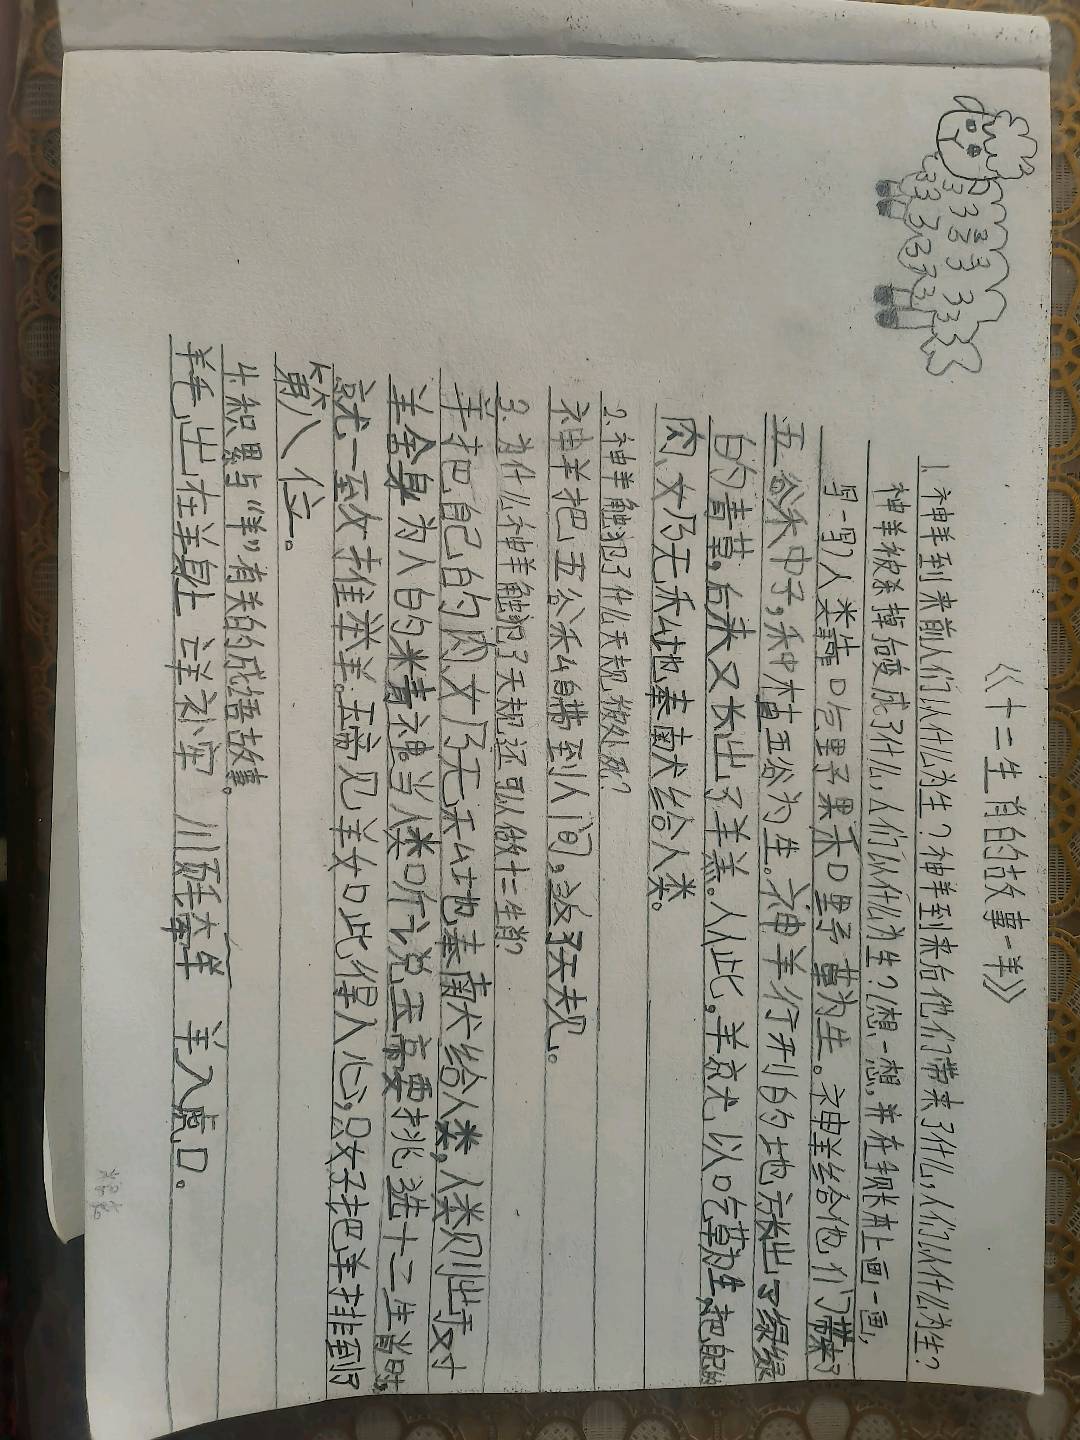 《十二生肖的故事-羊》
1.神羊到来前人们以什么为生?神羊到来后他们带来了什么,人们以什么为生?
神羊被杀掉后变成了什么,人们以什么为生?想一想,并在积累本上画一画,
写一写)人类靠吃野果和野草为生。神羊给他们带来了
五谷禾中子,禾中植五谷为生。神羊行刑的地方长出了绿绿
的青草,后来又长出了羊羔。从此,羊就以吃草为生,把自己的
肉、奶无私地奉献给人类。
2.神羊触犯了什么天规被处死?
神羊把五谷私自带到人间,激犯天规。
3.为什么神羊触犯了天规还可以做十二生肖?
羊把自己的肉奶无私地奉献给人类,人类则世反对
羊舍身为人的米青神当人类听说玉帝要挑选十二生肖时,
就一致推举羊。玉帝见羊如此得人心,只好把羊排到
第八位。
4.积累与“羊”有关的成语故事。
羊毛出在羊身上 亡羊补牢 川厚大军 羊入虎口。